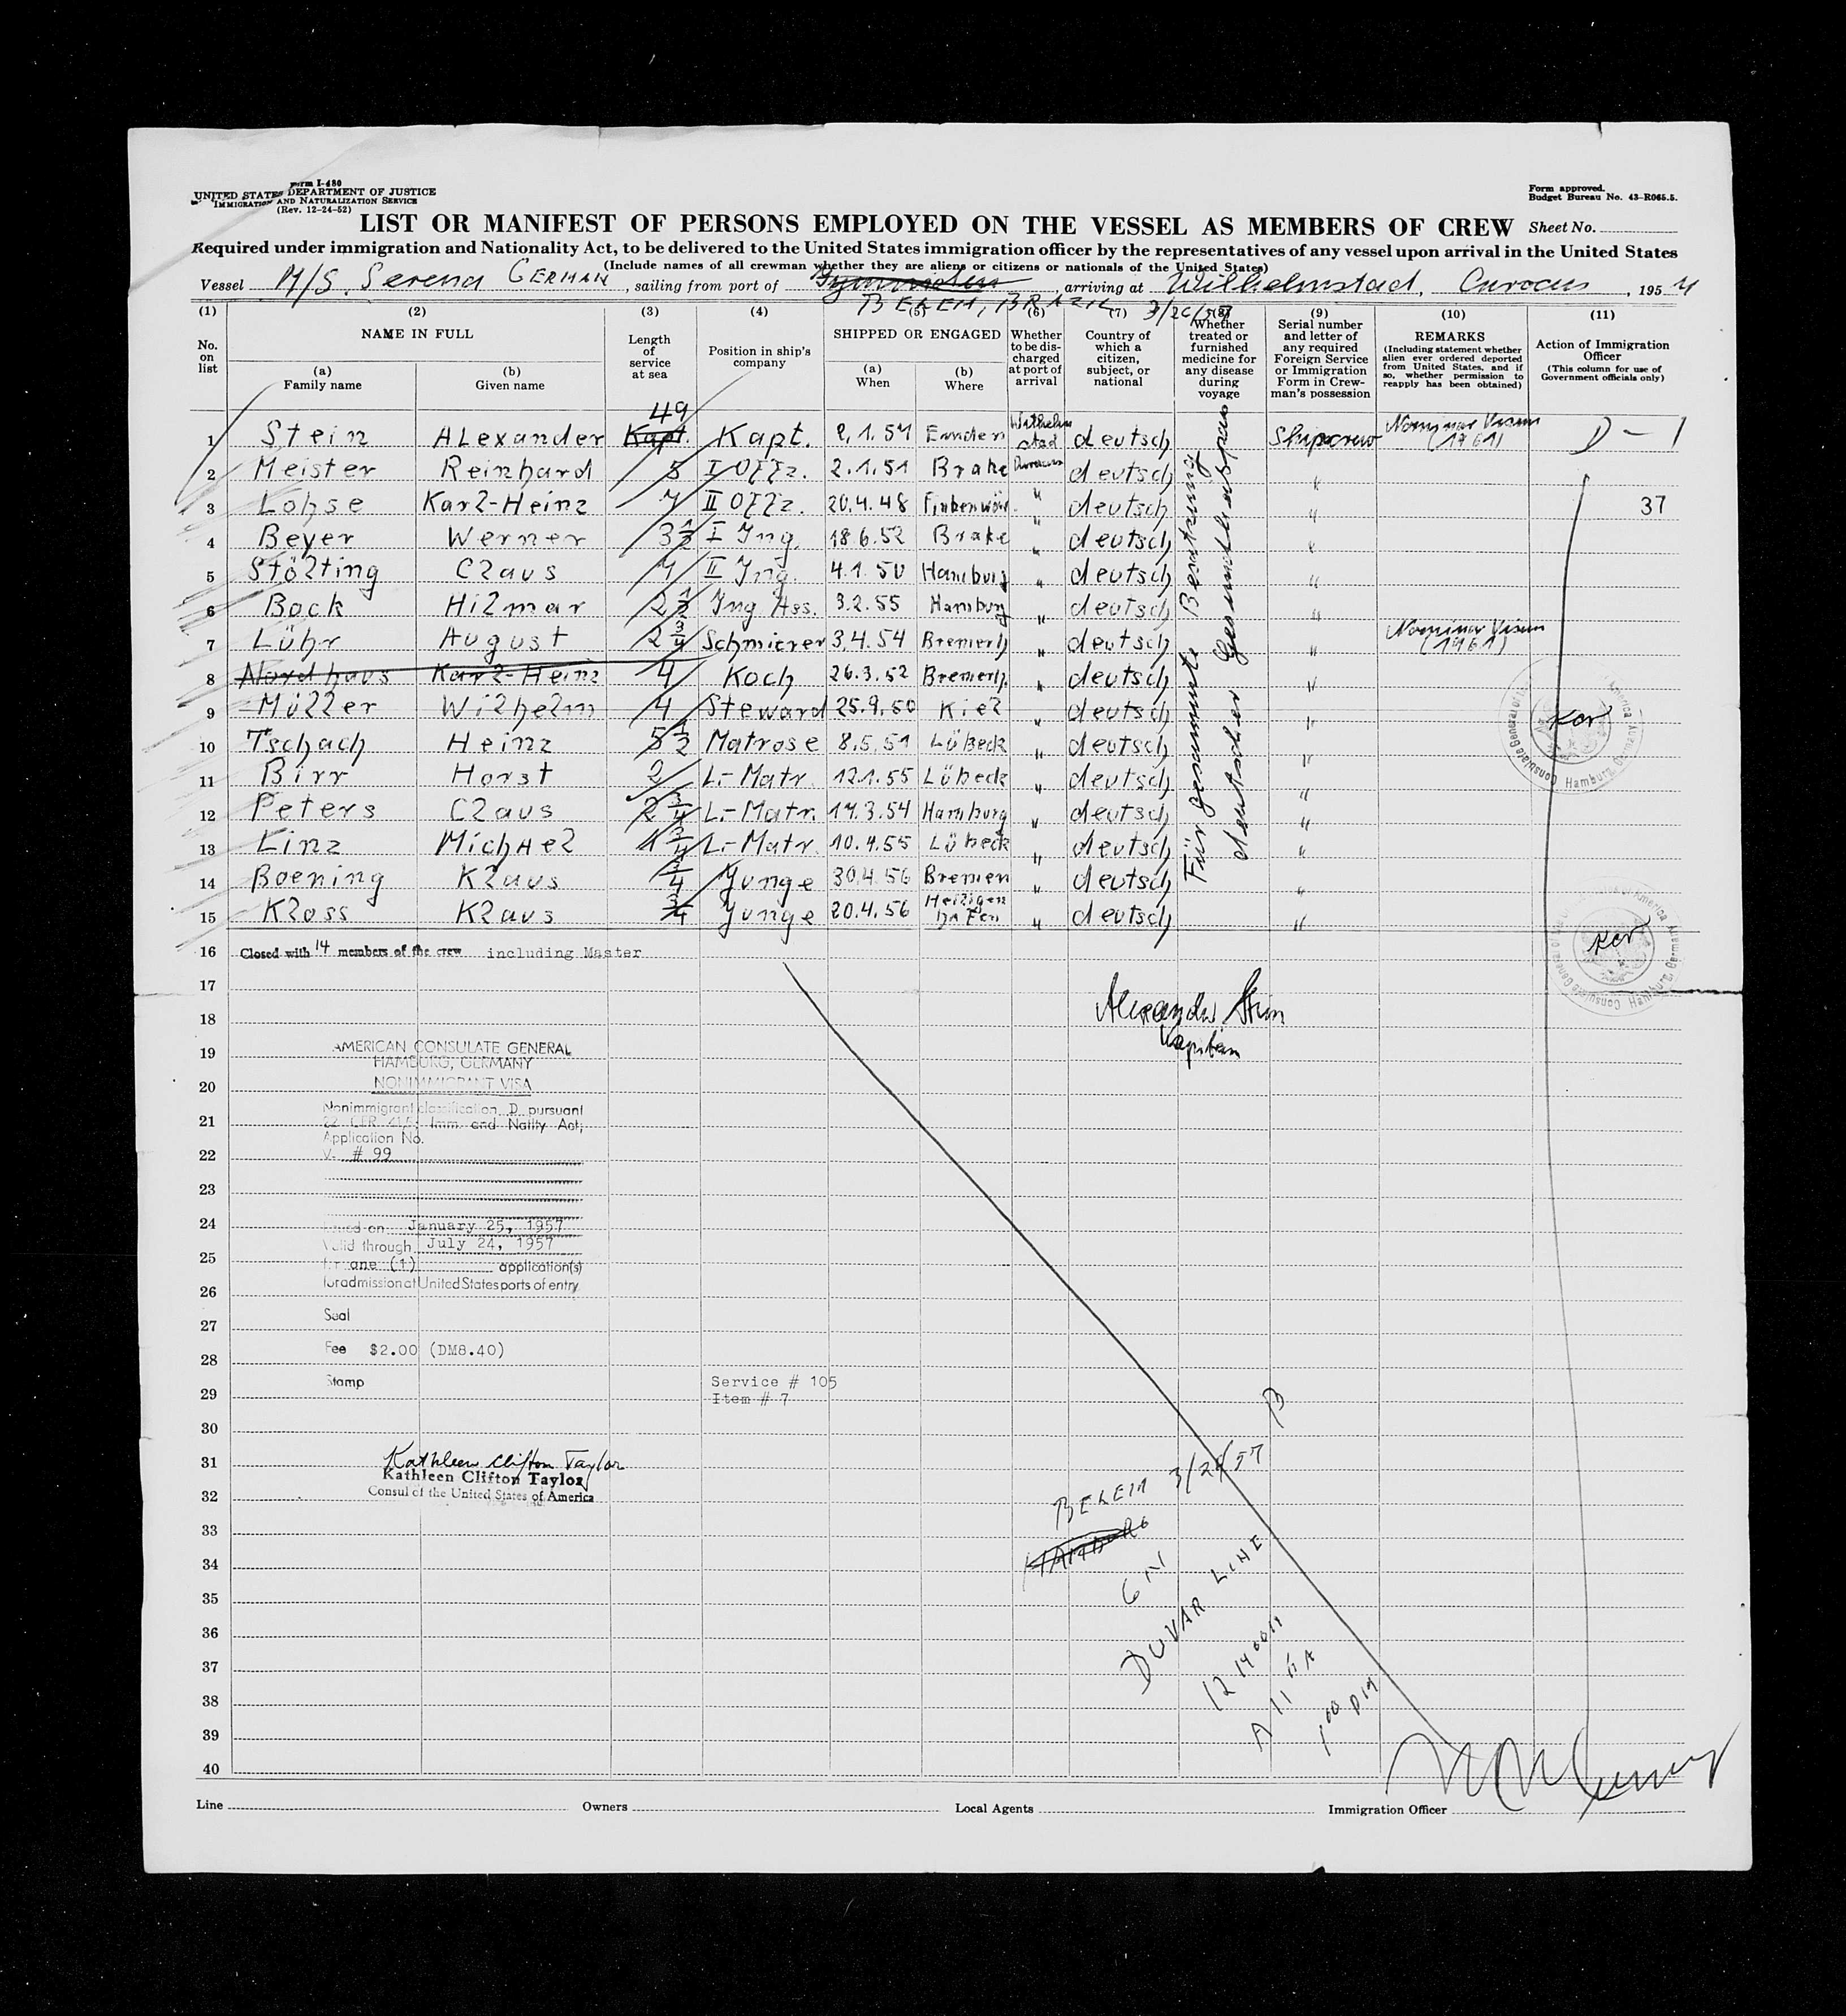 Form I-480
UNITED STATES DEPARTMENT OF JUSTICE
IMMIGRATION AND NATURALIZATION SERVICE
(Rev. 12-24-52)
Form approved.
Budget Bureau No. 43-R065.5.
LIST OR MANIFEST OF PERSONS EMPLOYED ON THE VESSEL AS MEMBERS OF CREW Sheet No.
Required under immigration and Nationality Act, to be delivered to the United States immigration officer by the representatives of any vessel upon arrival in the United States
(Include names of all crewman whether they are aliens or citizens or nationals of the United States)
Vessel M/S. Serena GERMAN, sailing from port of , arriving at Wilhelmstad, , 195
BELEM, BRAZIL 3/26/57
(1) (2) (3) (4) (5) (6) (7) (8) (9) (10) (11)
No. on list
NAME IN FULL
(a) Family name
(b) Given name
Length of service at sea
Position in ship's company
SHIPPED OR ENGAGED
(a) When
(b) Where
Whether to be discharged at port of arrival
Country of which a citizen, subject, or national
Whether treated or furnished medicine for any disease during voyage
Serial number and letter of any required Foreign Service or Immigration Form in Crewman's possession
REMARKS
(Including statement whether alien ever ordered deported from United States, and if so, whether permission to reapply has been obtained)
Action of Immigration Officer
(This column for use of Government officials only)
1 Stein Alexander 49 Kapt. Kapt. 2.1.54 Emden Wilhelmstad deutsch Shipscrew (1961) D-1
2 Meister Reinhard 5 I Offz. 2.1.51 Brake deutsch "
3 Lohse Karl-Heinz 7 II Offz. 20.4.48 " deutsch " 37
4 Beyer Werner 3½ I Ing. 18.6.52 Brake " deutsch "
5 Stölting Claus 7 II Ing. 4.1.50 Hamburg " deutsch "
6 Bock Hilmar 2½ Ing Ass. 3.2.55 Hamburg " deutsch "
7 Lühr August 2¾ Schmierer 3.4.54 Bremerh " deutsch " (1961)
8 Nordhaus Karl-Heinz 4 Koch 26.3.52 Bremerh. " deutsch "
9 Müller Wilhelm 4 Steward 25.9.50 Kiel " deutsch "
10 Tschach Heinz 5½ Matrose 8.5.51 Lübeck " deutsch "
11 Birr Horst 2 L.-Matr. 12.1.55 Lübeck " deutsch "
12 Peters Claus 2¾ L.-Matr. 17.3.54 Hamburg " deutsch "
13 Linz Michael 1¾ L.-Matr. 10.4.55 Lübeck " deutsch "
14 Boening Klaus ¾ Junge 30.4.56 Bremen " deutsch "
15 Kloss Klaus ¾ Junge 20.4.56 Heiligenhafen " deutsch "
Für gesammte Besatzung
deutscher Gesundheitspass
16 Closed with 14 members of the crew including Master
17
18
Alexander Stein
Kapitän
19
AMERICAN CONSULATE GENERAL
HAMBURG, GERMANY
20
NONIMMIGRANT VISA
Nonimmigrant classification D pursuant
21
22 CFR 41.5; Imm. and Natlty Act;
Application No.
22
V- # 99
23
24
Issued on January 25, 1957
Valid through July 24, 1957
25
for one (1) application(s)
for admission at United States ports of entry
26
Seal
27
Fee $2.00 (DM8.40)
28
Stamp
Service # 105
29
Item # 7
30
31
Kathleen Clifton Taylor
Kathleen Clifton Taylor
32
Consul of the United States of America
BELEM 3/26/57
33
34
35
DUVAR LINE
36
37
38
39
40
Line Owners Local Agents Immigration Officer
Consulate General of the United States of America
Hamburg, Germany
KCT
Consulate General of the United States of America
Hamburg, Germany
KCT